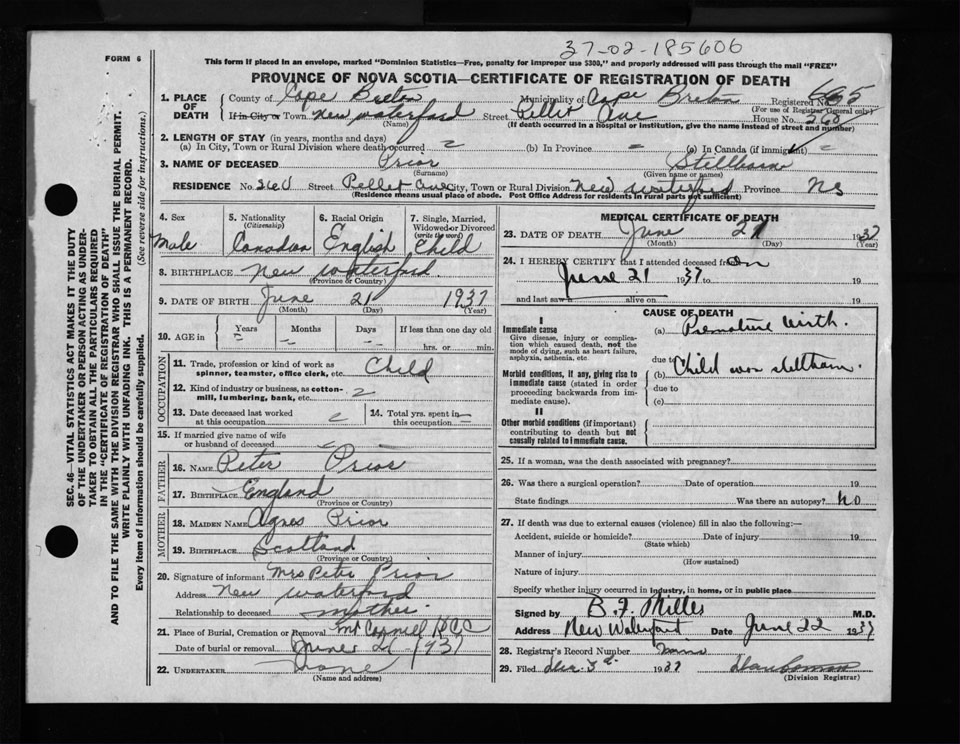 37-02-185606
FORM 6
This form if placed in an envelope, marked "Dominion Statistics—Free, penalty for improper use $300," and properly addressed will pass through the mail "FREE"
PROVINCE OF NOVA SCOTIA—CERTIFICATE OF REGISTRATION OF DEATH
SEC. 46—VITAL STATISTICS ACT MAKES IT THE DUTY
OF THE UNDERTAKER OR PERSON ACTING AS UNDER-
TAKER TO OBTAIN ALL THE PARTICULARS REQUIRED
IN THE "CERTIFICATE OF REGISTRATION OF DEATH"
AND TO FILE THE SAME WITH THE DIVISION REGISTRAR WHO SHALL ISSUE THE BURIAL PERMIT.
WRITE PLAINLY WITH UNFADING INK. THIS IS A PERMANENT RECORD.
Every item of information should be carefully supplied. (See reverse side for instructions.)
1. PLACE OF DEATH County of Cape Breton Municipality of Cape Breton Registered No.
(For use of Registrar General only)
If in City or Town New Waterford Street Pellet Ave House No. 260
(Name) (If death occurred in a hospital or institution, give the name instead of street and number)
2. LENGTH OF STAY (in years, months and days)
(a) In City, Town or Rural Division where death occurred (b) In Province (c) In Canada (if immigrant)
3. NAME OF DECEASED Prior Stillborn
(Surname) (Given name or names)
RESIDENCE No. 260 Street Pellet Ave City, Town or Rural Division New Waterford Province NS
(Residence means usual place of abode. Post Office Address for residents in rural parts not sufficient)
4. Sex 5. Nationality (Citizenship) 6. Racial Origin 7. Single, Married, Widowed or Divorced (write the word)
Male Canadian English Child
8. BIRTHPLACE New Waterford
(Province or Country)
9. DATE OF BIRTH June 21 1937
(Month) (Day) (Year)
10. AGE in Years Months Days If less than one day old
hrs. or min.
OCCUPATION
11. Trade, profession or kind of work as spinner, teamster, office clerk, etc. Child
12. Kind of industry or business, as cotton-mill, lumbering, bank, etc.
13. Date deceased last worked at this occupation 14. Total yrs. spent in this occupation
15. If married give name of wife or husband of deceased
FATHER
16. NAME Peter Prior
17. BIRTHPLACE England
(Province or Country)
MOTHER
18. MAIDEN NAME Agnes Prior
19. BIRTHPLACE Scotland
(Province or Country)
20. Signature of informant Mrs Peter Prior
Address New Waterford
Relationship to deceased mother
21. Place of Burial, Cremation or Removal Mt Carmel R.C.C
Date of burial or removal June 21 1937
22. UNDERTAKER
(Name and address)
MEDICAL CERTIFICATE OF DEATH
23. DATE OF DEATH June 21 1937
(Month) (Day) (Year)
24. I HEREBY CERTIFY that I attended deceased from on
June 21 1937 to 19
and last saw alive on 19
CAUSE OF DEATH
I
Immediate cause
Give disease, injury or complication which caused death, not the mode of dying, such as heart failure, asphyxia, asthenia, etc.
(a) Premature birth.
due to
Morbid conditions, if any, giving rise to immediate cause (stated in order proceeding backwards from immediate cause).
(b) Child was stillborn.
due to
(c)
II
Other morbid conditions (if important) contributing to death but not causally related to immediate cause.
25. If a woman, was the death associated with pregnancy?
26. Was there a surgical operation? Date of operation 19
State findings Was there an autopsy? No
27. If death was due to external causes (violence) fill in also the following:—
Accident, suicide or homicide? Date of injury 19
(State which)
Manner of injury
(How sustained)
Nature of injury
Specify whether injury occurred in industry, in home, or in public place
Signed by B. F. Miller M.D.
Address New Waterford Date June 22 1937
28. Registrar's Record Number
29. Filed 1937
(Division Registrar)